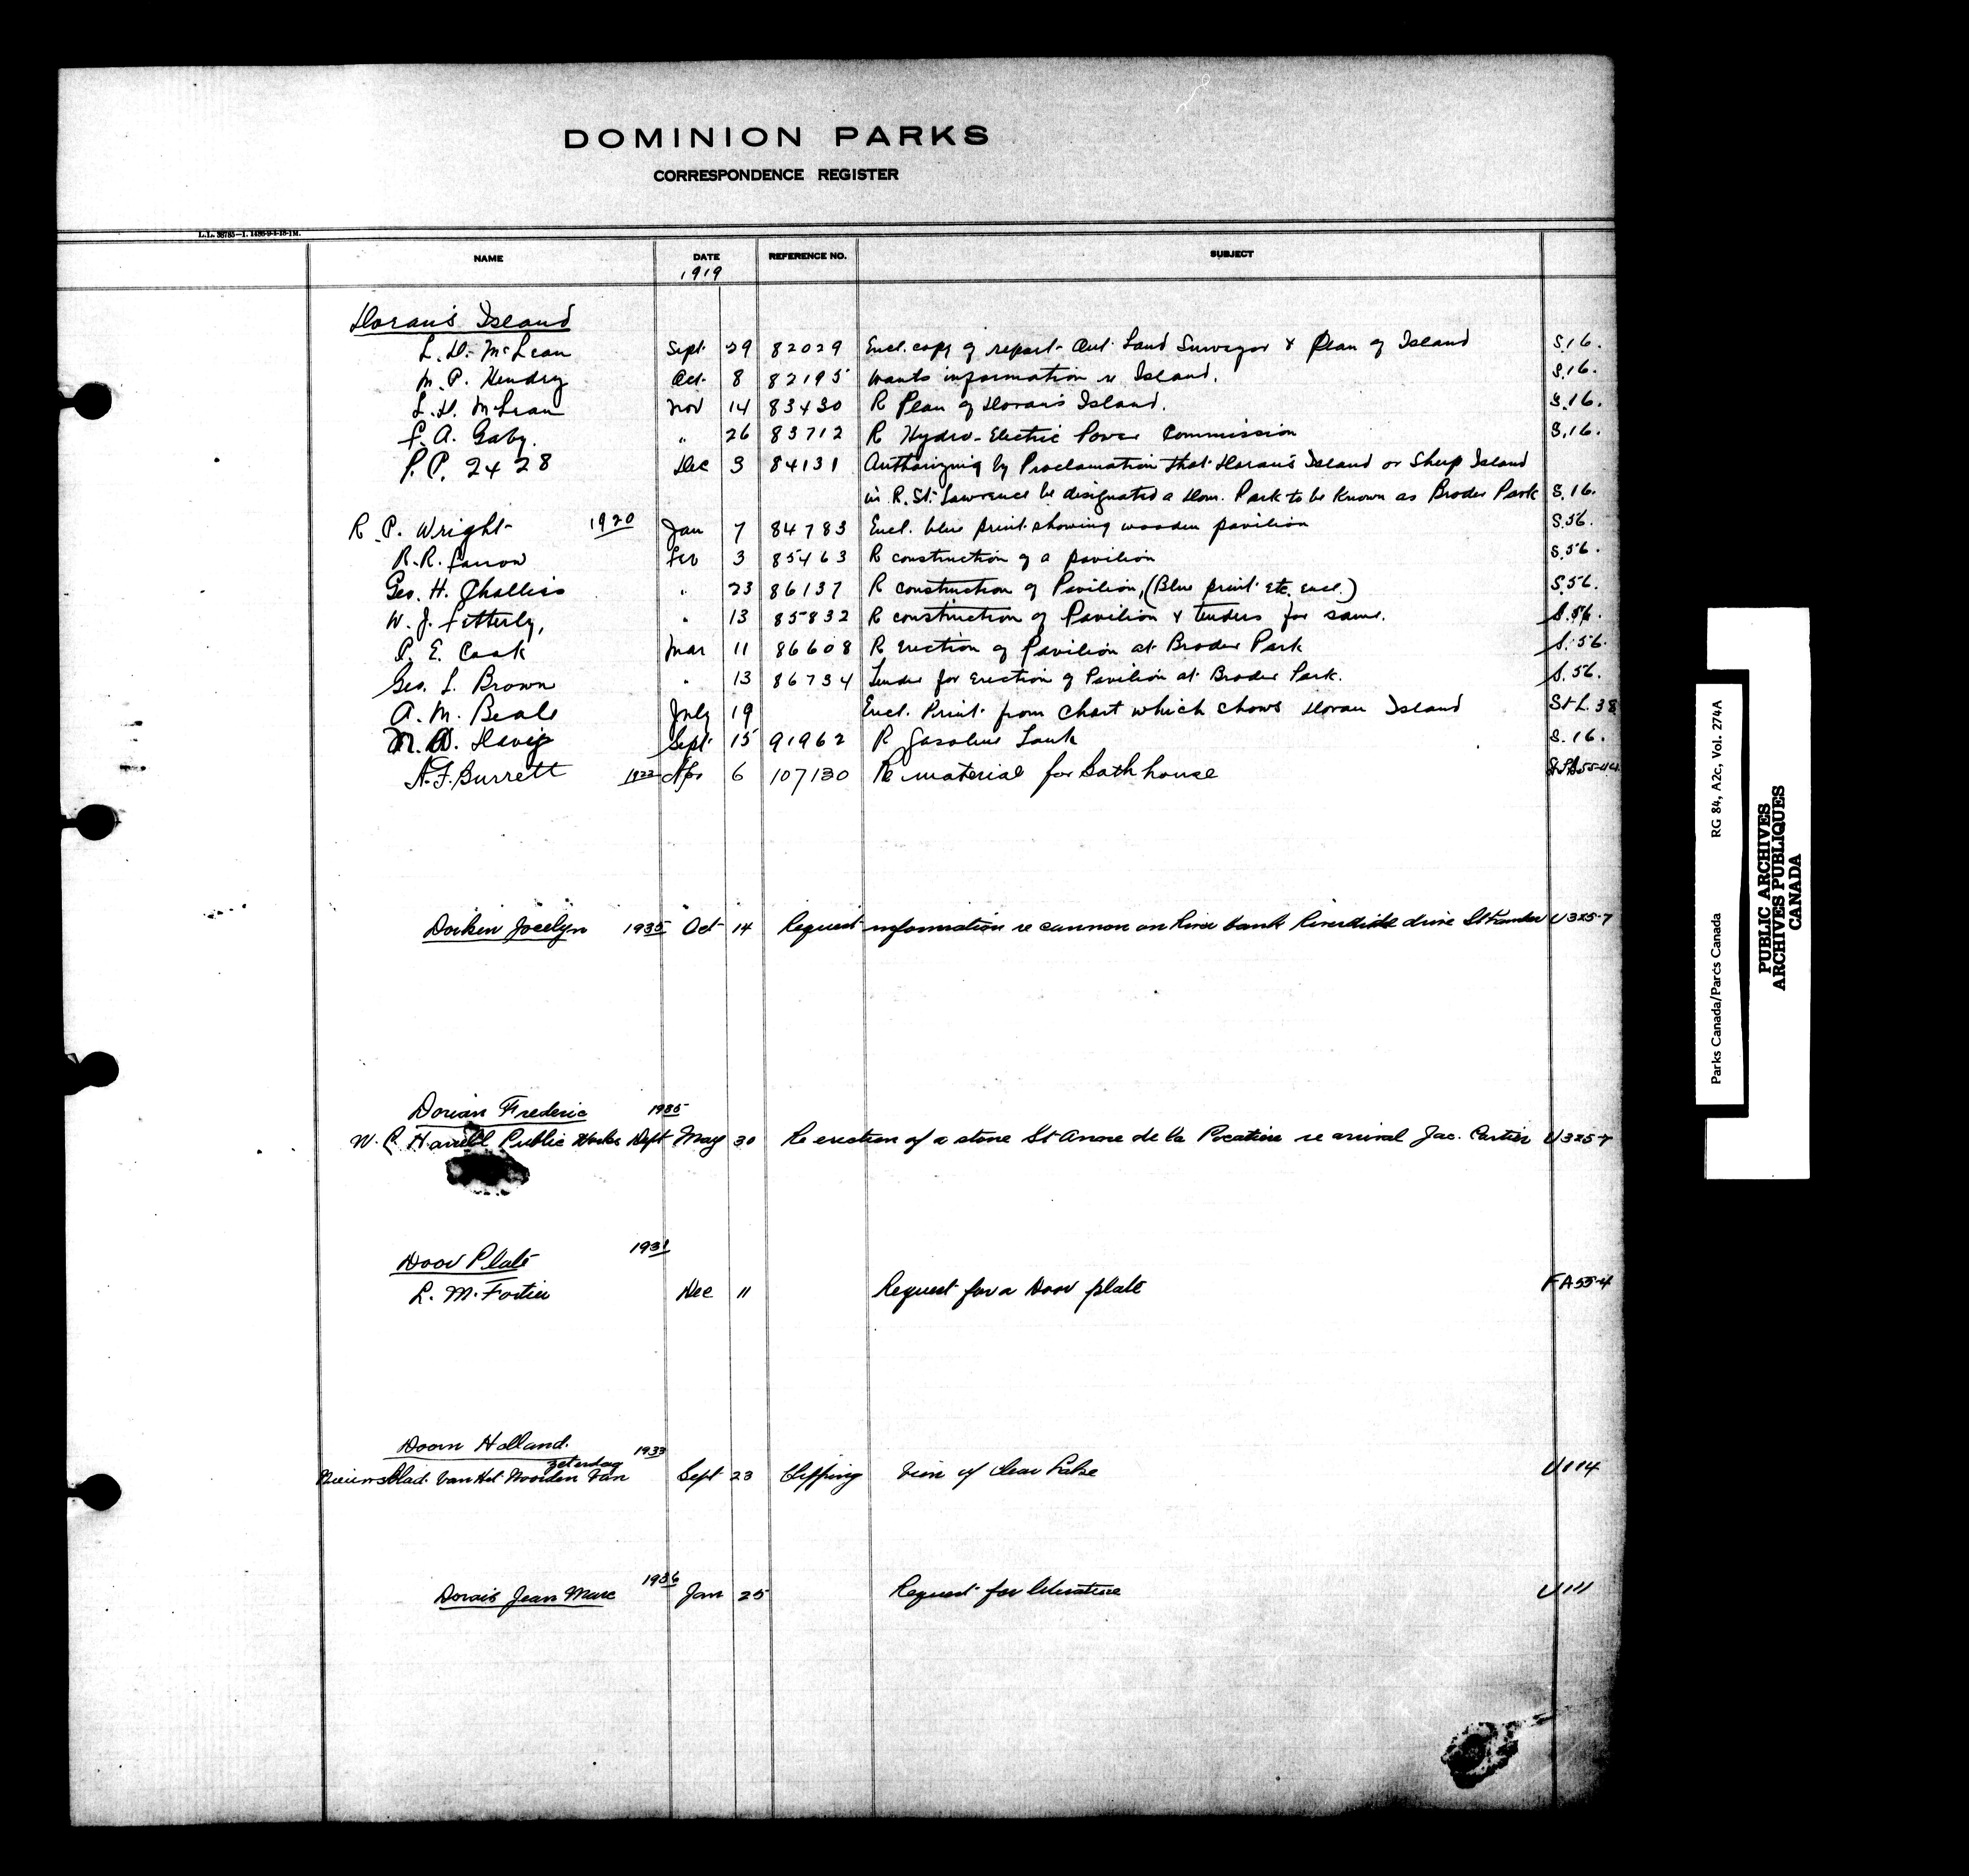 DOMINION PARKS
CORRESPONDENCE REGISTER
NAME DATE REFERENCE NO. SUBJECT
1919
Doran's Island
L. D. McLean Sept. 29 82029 Encl. copy of report Ont. Land Surveyor & Plan of Island S.16.
M. P. Hendry Oct. 8 82195 Wants information re Island. S.16.
L. D. McLean Nov 14 83430 R Plan of Doran's Island. S.16.
F. A. Gaby. " 26 83712 R Hydro-Electric Power Commission S.16.
P.P. 2428 Dec 3 84131 Authorizing by Proclamation that Doran's Island or Sheep Island
in R. St. Lawrence be designated a Dom. Park to be known as Broder Park S.16.
R. P. Wright 1920 Jan 7 84783 Encl. blue print showing wooden pavilion S.56.
R. R. Farrow Feb 3 85463 R construction of a pavilion S.56.
Geo. H. Challies " 23 86137 R construction of Pavilion, (Blue print etc. encl.) S.56.
W. J. Fetterly, " 13 85832 R construction of Pavilion & tenders for same. S.56.
P. E. Cook Mar 11 86608 R Erection of Pavilion at Broder Park S.56.
Geo. L. Brown " 13 86734 Tender for Erection of Pavilion at Broder Park. S.56.
A. M. Beale July 19 Encl. Print from Chart which shows Doran Island St L. 38
M. W. Davis Sept. 15 91962 R Gasoline Tank S.16.
A. F. Burrett 1922 Apr 6 107130 Re material for Bath house
Dorken Jocelyn 1935 Oct 14 Request information re cannon on River bank Riverside drive St Lambert U325-7
Dorian Frederic 1935
W. P. Harrell Public Works Dept May 30 Re erection of a stone St Anne de la Pocatiere re arrival Jac. Cartier U325-7
Door Plate 1931
L. M. Fortier Dec 11 Request for a Door plate FA55-4
Doorn Holland. 1933
Nieuwsblad Van Het Noorden Van zaterdag Sept 23 Clipping View of Clear Lake U114
Dorais Jean Marc 1936 Jan 25 Request for literature U111
Parks Canada/Parcs Canada RG 84, A2c, Vol. 274A
PUBLIC ARCHIVES
ARCHIVES PUBLIQUES
CANADA